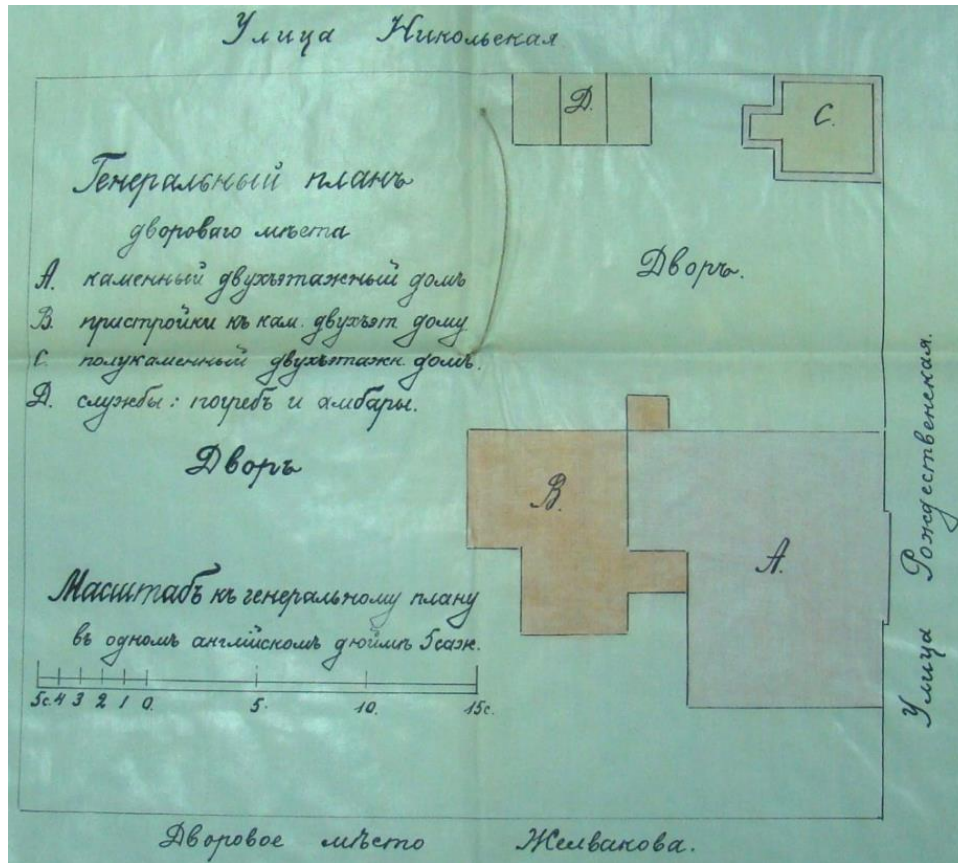 Улица Никольская
Д.
С.
Генеральный планъ
двороваго мѣста
А. каменный двухъэтажный домъ
В. пристройки къ кам. двухъэт дому
С. полукаменный двухъэтажн. домъ.
Д. службы: погребъ и амбары.
Дворъ.
Дворъ
В.
А.
Улица Рождественская.
Масштабъ къ генеральному плану
въ одномъ английскомъ дюймѣ 5 саж.
5с. 4 3 2 1 0. 5. 10. 15с.
Дворовое мѣсто Желвакова.